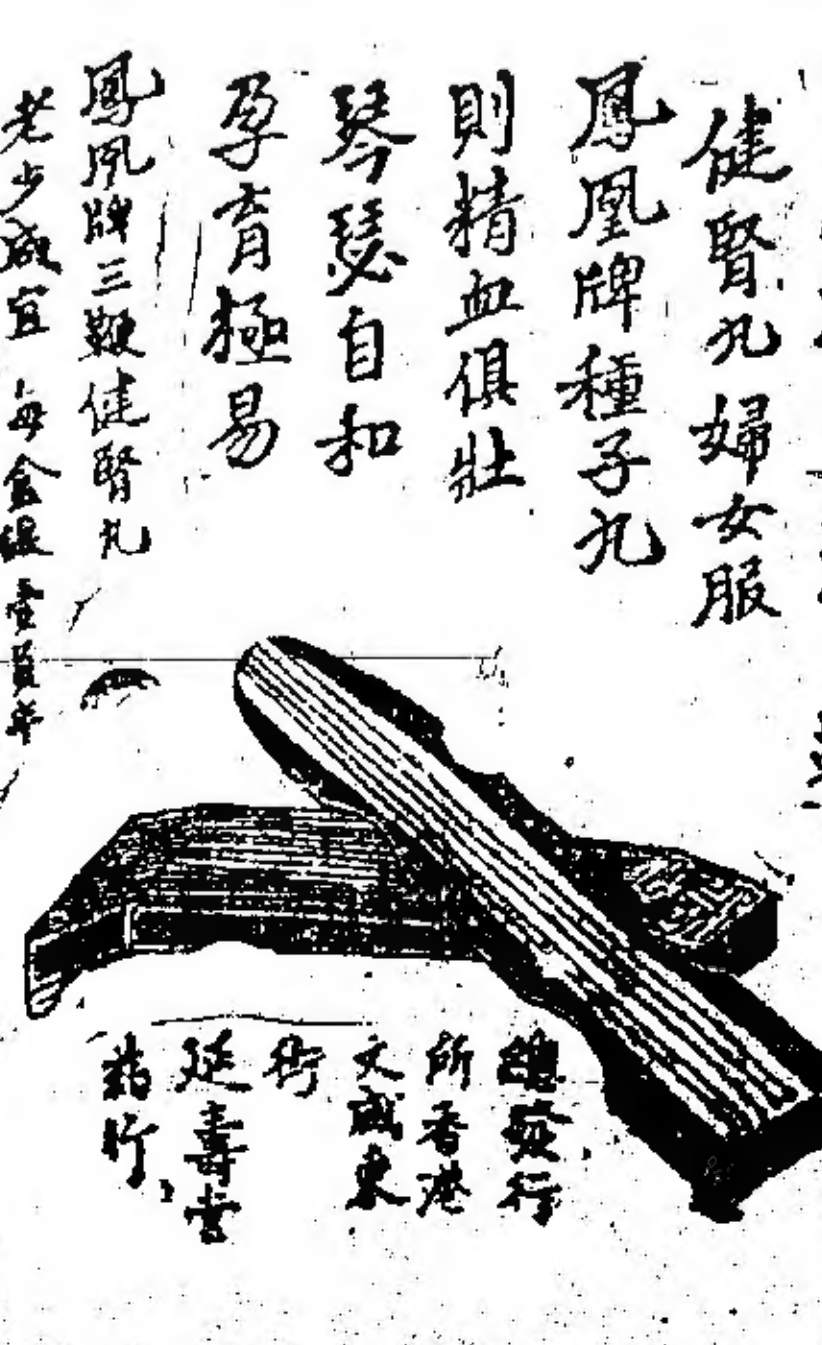 健腎丸婦女服
鳳凰牌種子丸
則精血俱壯
琴瑟自和
孕育極易
鳳凰牌三鞭健腎丸
老少咸宜 每盒銀壹員半
總發行
所香港
文咸東
街
延壽堂
葯行